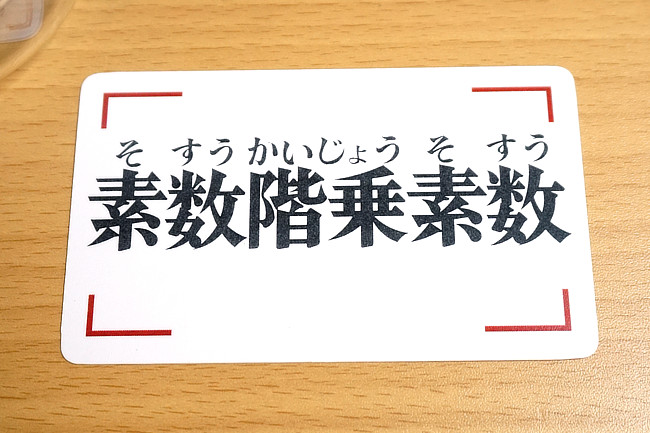 そすうかいじょうそすう
素数階乗素数